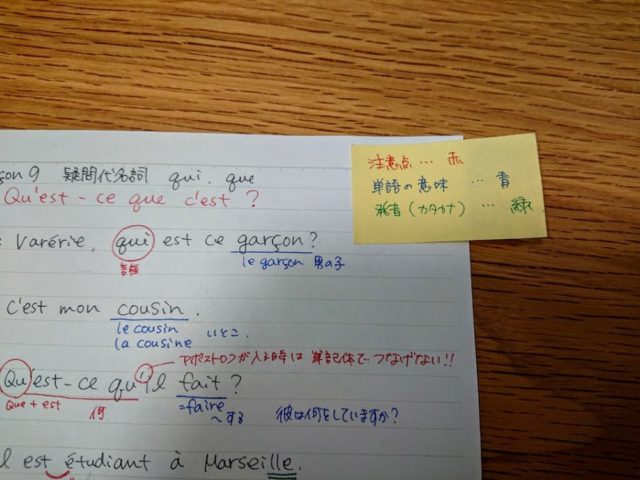 son 9 疑問代名詞 qui. que
Qu'est-ce que c'est ?
Varérie, qui est ce garçon?
誰
le garçon 男の子
C'est mon cousin.
le cousin いとこ.
la cousine
アポストロフが入る時は 筆記体で つなげない!!
Qu'est-ce qu'il fait ?
que + est 何 =faire
~する 彼は何をしていますか?
l est étudiant à Marseille.
注意点 … 赤
単語の意味 … 青
発音(カタカナ) … 緑